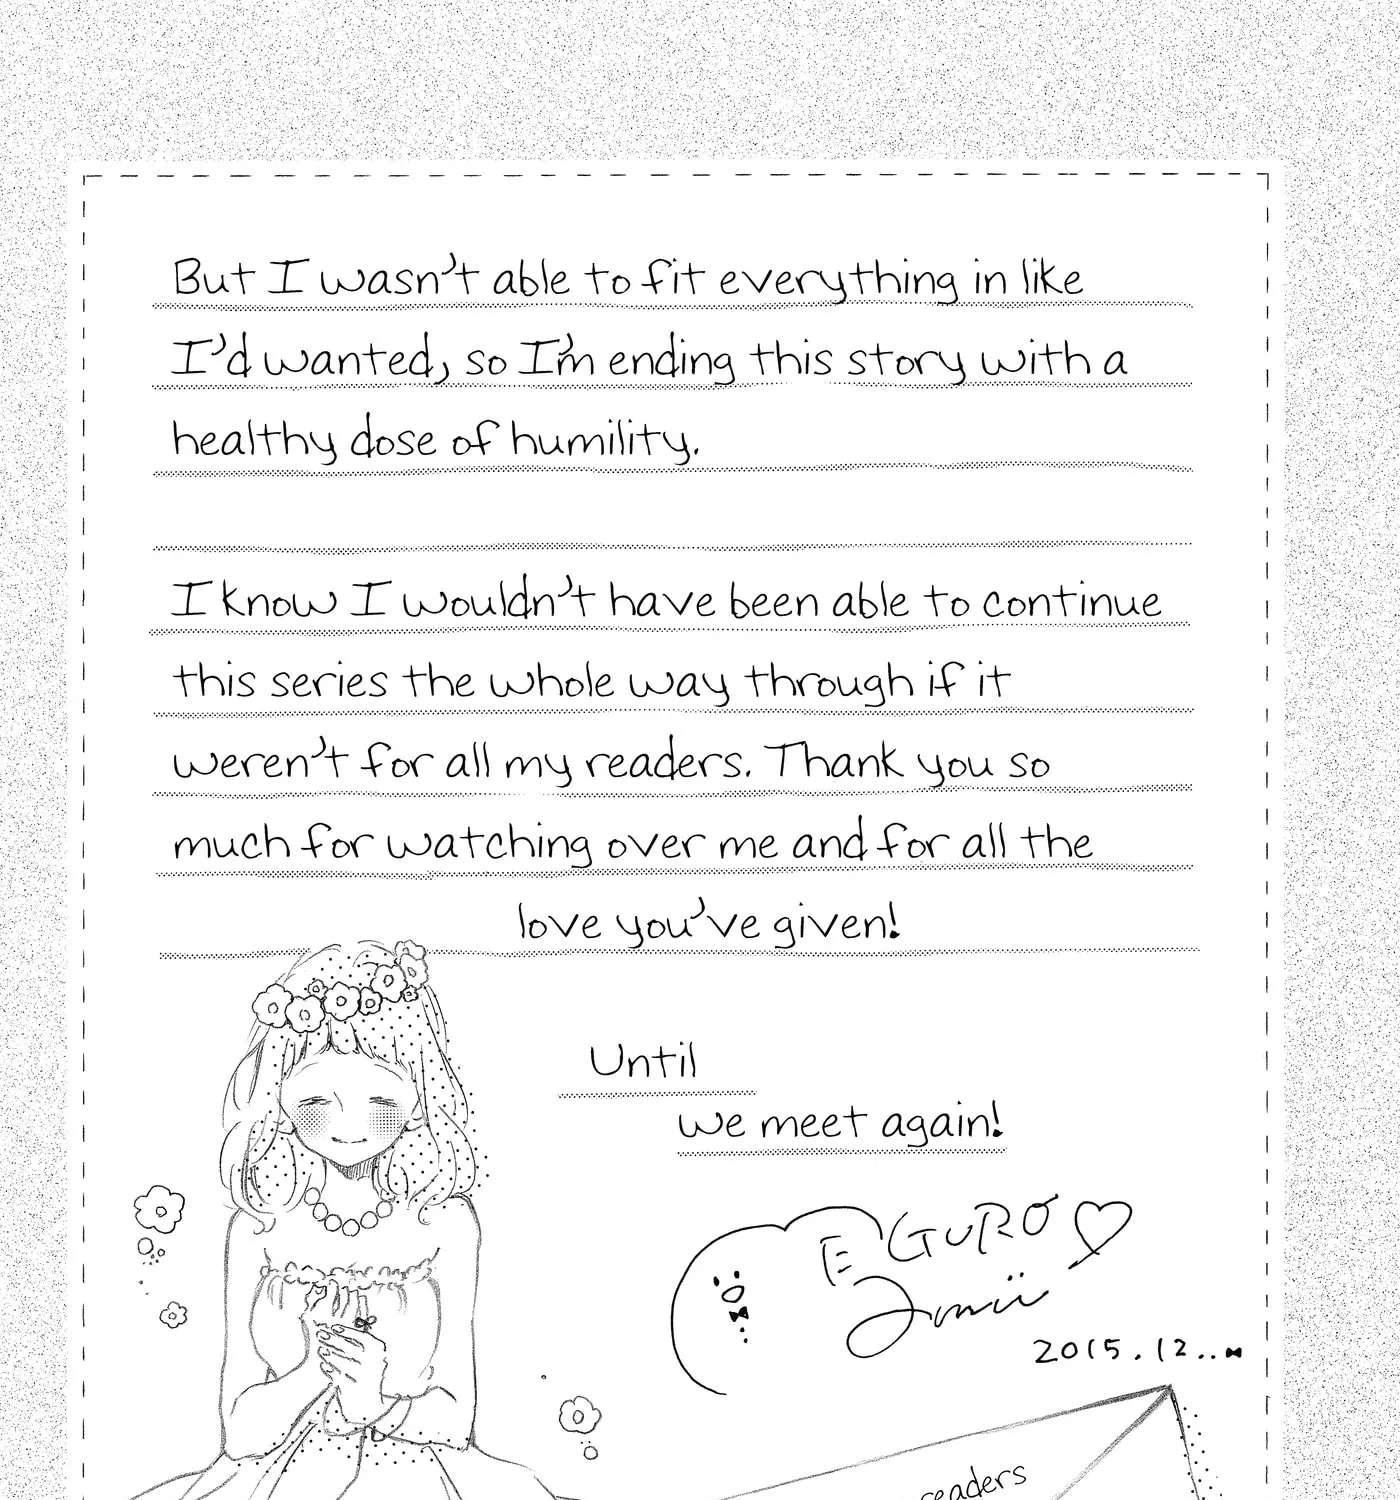 But I wasn't able to fit everything in like
I'd wanted, so I'm ending this story with a
healthy dose of humility.
I know I wouldn't have been able to continue
this series the whole way through if it
weren't for all my readers. Thank you so
much for watching over me and for all the
love you've given!
Until
we meet again!
EGURO
2015.12..
readers